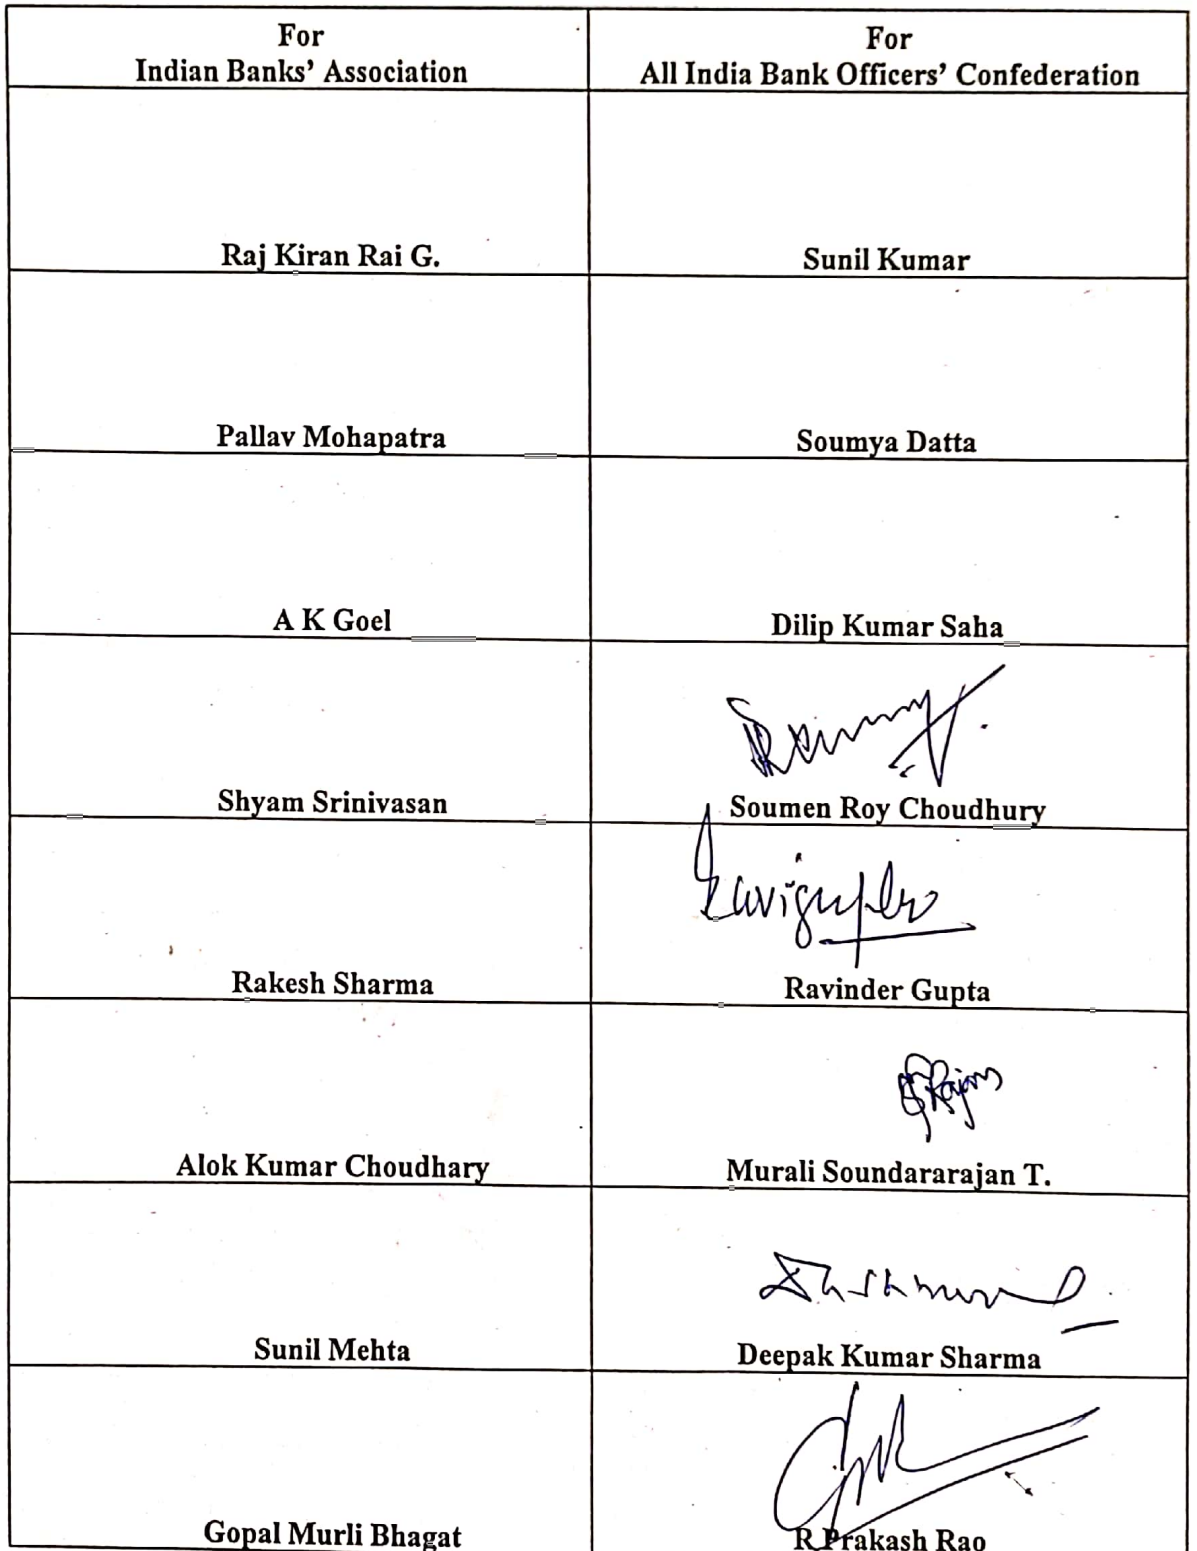 For
Indian Banks' Association
For
All India Bank Officers' Confederation
Raj Kiran Rai G.
Sunil Kumar
Pallav Mohapatra
Soumya Datta
A K Goel
Dilip Kumar Saha
Shyam Srinivasan
Soumen Roy Choudhury
Ravigupta
Rakesh Sharma
Ravinder Gupta
Alok Kumar Choudhary
Murali Soundararajan T.
Sunil Mehta
Deepak Kumar Sharma
Gopal Murli Bhagat
R Prakash Rao